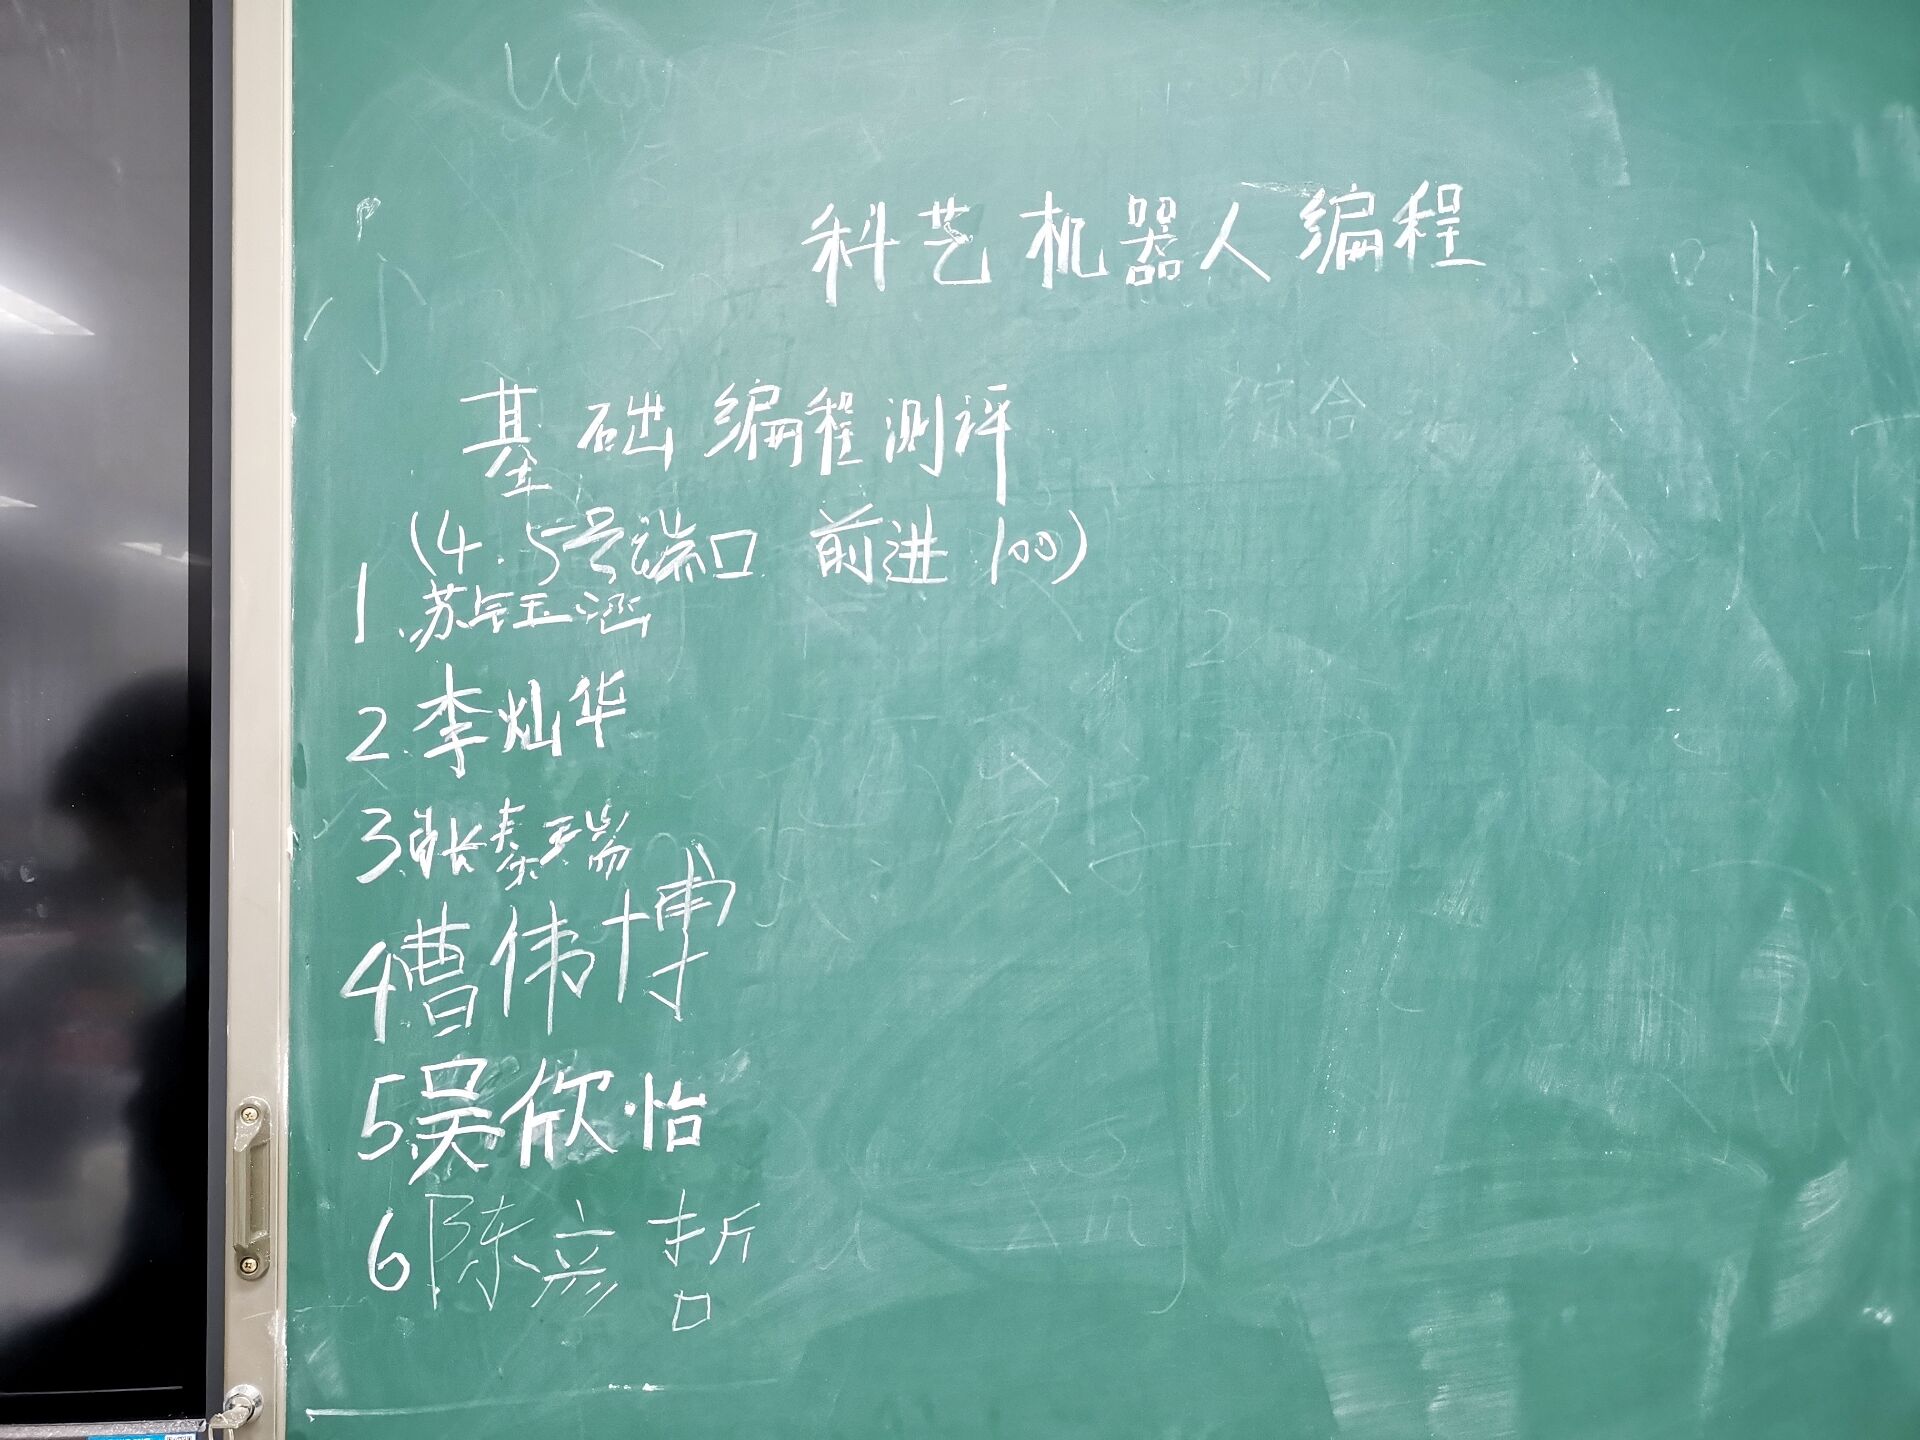 科艺机器人编程
基础编程测评
(4.5号端口 前进 100)
1.苏钰涵
2.李灿华
3.张泰瑞
4曹伟博
5吴欣怡
6陈彦哲
综合